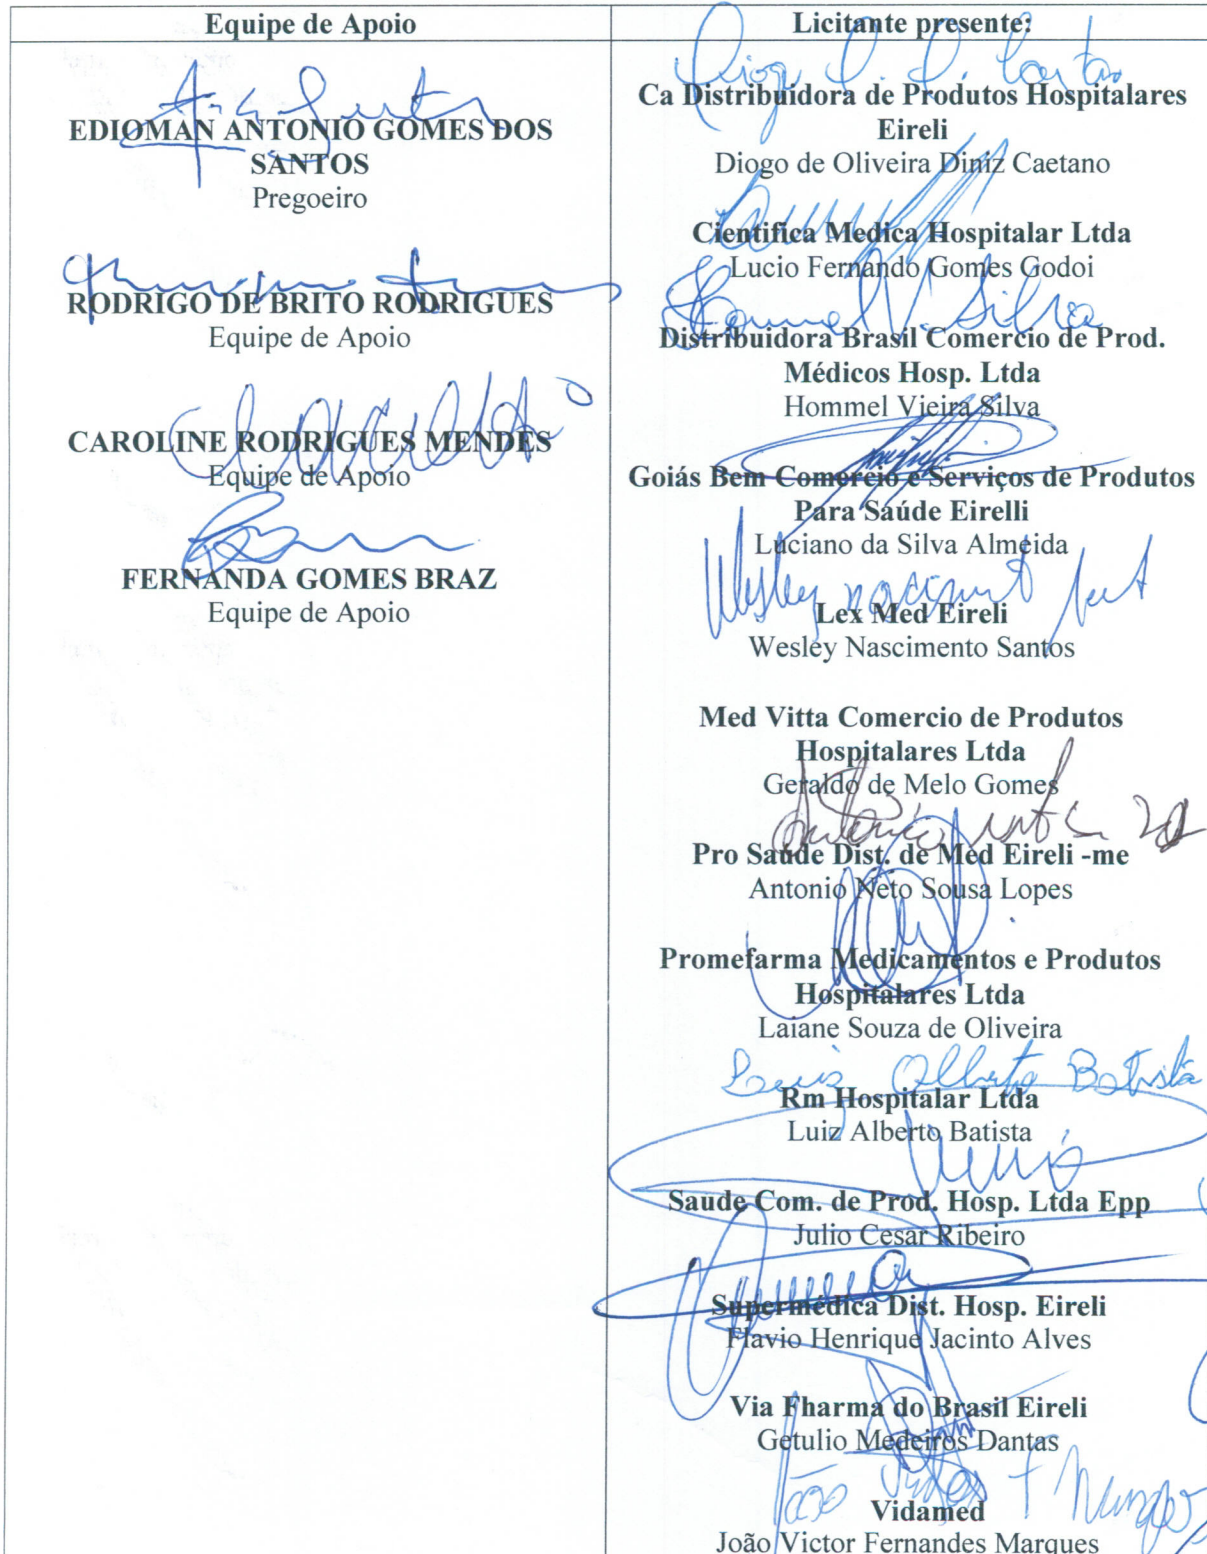 Equipe de Apoio
EDIOMAN ANTONIO GOMES DOS
SANTOS
Pregoeiro
RODRIGO DE BRITO RODRIGUES
Equipe de Apoio
CAROLINE RODRIGUES MENDES
Equipe de Apoio
FERNANDA GOMES BRAZ
Equipe de Apoio
Licitante presente:
Ca Distribuidora de Produtos Hospitalares
Eireli
Diogo de Oliveira Diniz Caetano
Cientifica Medica Hospitalar Ltda
Lucio Fernando Gomes Godoi
Hommel V. Silva
Distribuidora Brasil Comercio de Prod.
Médicos Hosp. Ltda
Hommel Vieira Silva
Goiás Bem Comercio e Serviços de Produtos
Para Saúde Eirelli
Luciano da Silva Almeida
Wesley
Lex Med Eireli
Wesley Nascimento Santos
Med Vitta Comercio de Produtos
Hospitalares Ltda
Geraldo de Melo Gomes
Antonio
Pro Saude Dist. de Med Eireli -me
Antonio Neto Sousa Lopes
Promefarma Medicamentos e Produtos
Hospitalares Ltda
Laiane Souza de Oliveira
Luis Alberto Batista
Rm Hospitalar Ltda
Luiz Alberto Batista
Saude Com. de Prod. Hosp. Ltda Epp
Julio Cesar Ribeiro
Supermédica Dist. Hosp. Eireli
Flavio Henrique Jacinto Alves
Via Fharma do Brasil Eireli
Getulio Medeiros Dantas
João
Vidamed
João Victor Fernandes Marques